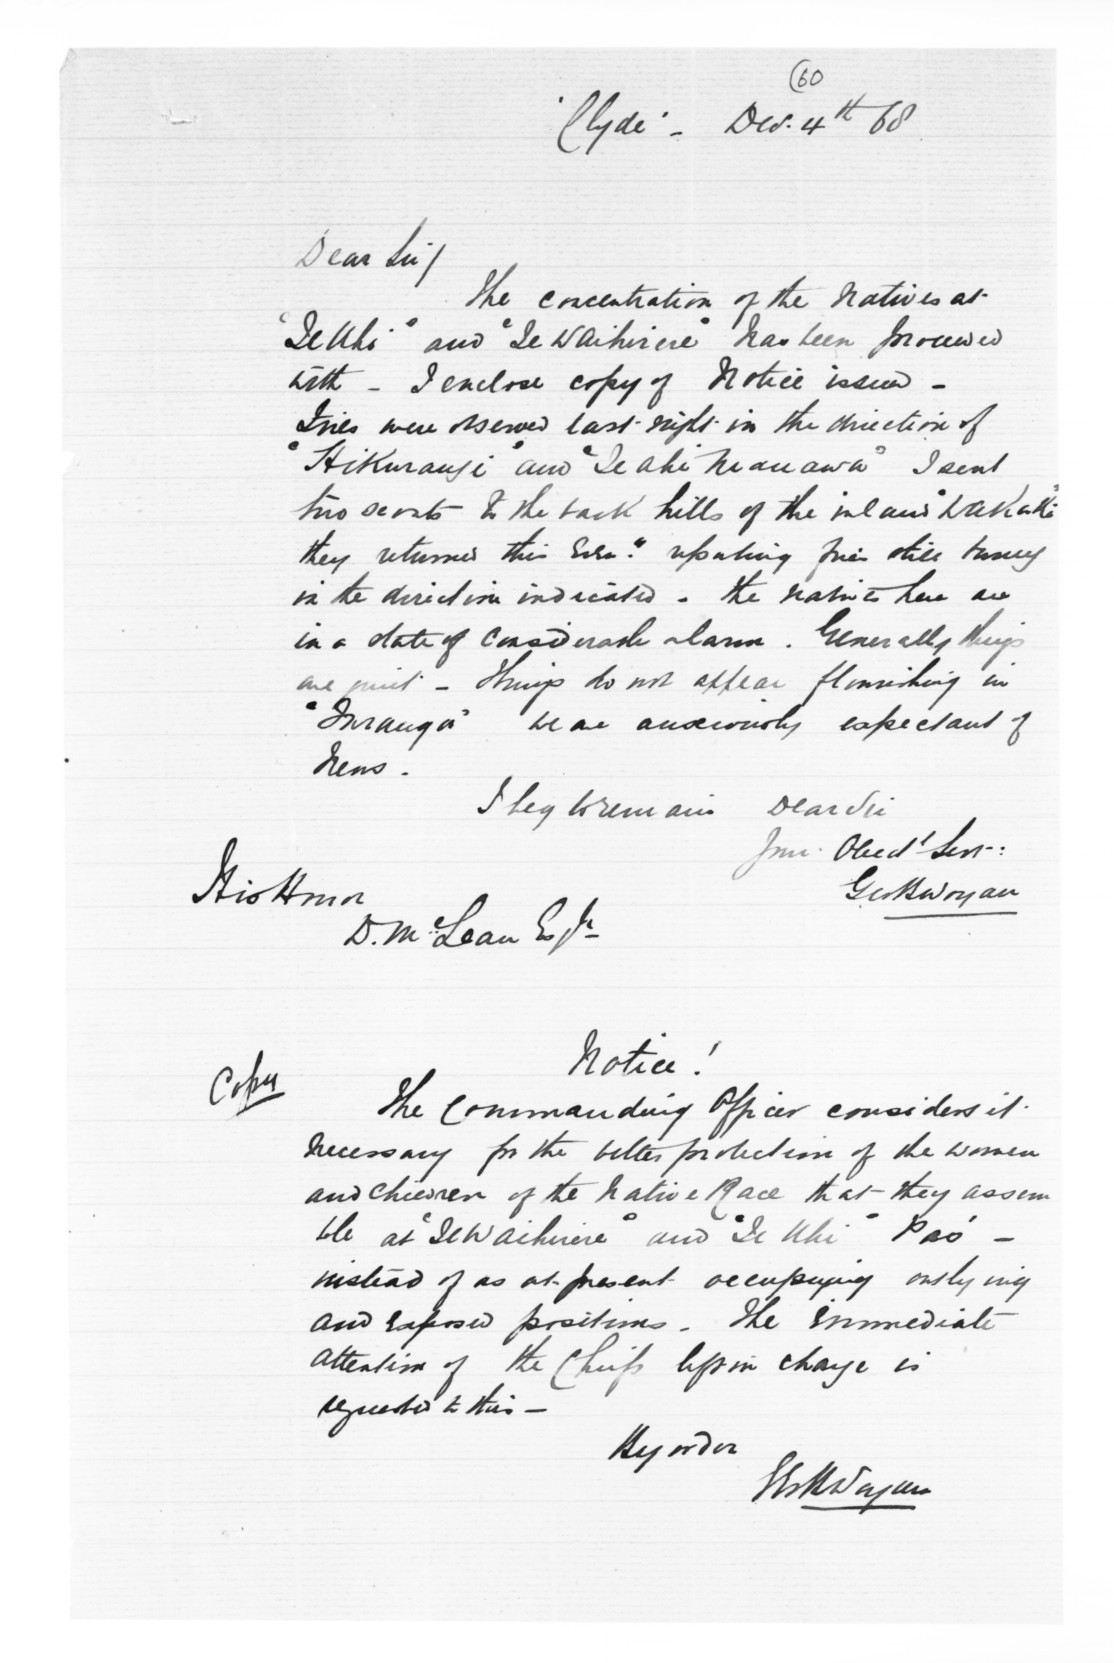 60
"Clyde" - Dec. 4th 68
Dear Sir/
The concentration of the Natives at
"Te Uhi" and "Te Waihirere" has been proceeded
with - I enclose copy of Notice issued -
Fires were observed last night in the direction of
"Hikurangi" and "Te Ahi Manawa" I sent
two scouts to the back hills of the inland
they returned this Even.g reporting fires still
in the direction indicated - the natives here are
in a state of considerable alarm. Generally things
are quiet - things do not appear flourishing in
"Turanga" we are anxiously expectant of
News.
I beg to remain Dear Sir
Your Obedt Servt:
His Honor
D. McLean Esqr
Notice!
Copy
The Commanding Officer considers it
necessary for the better protection of the women
and children of the Native Race that they assem
ble at "Te Waihirere" and "Te Uhi" Pas -
instead of as at present occupying outlying
and exposed positions. The immediate
attention of the Chiefs left in charge is
requested to this -
By order